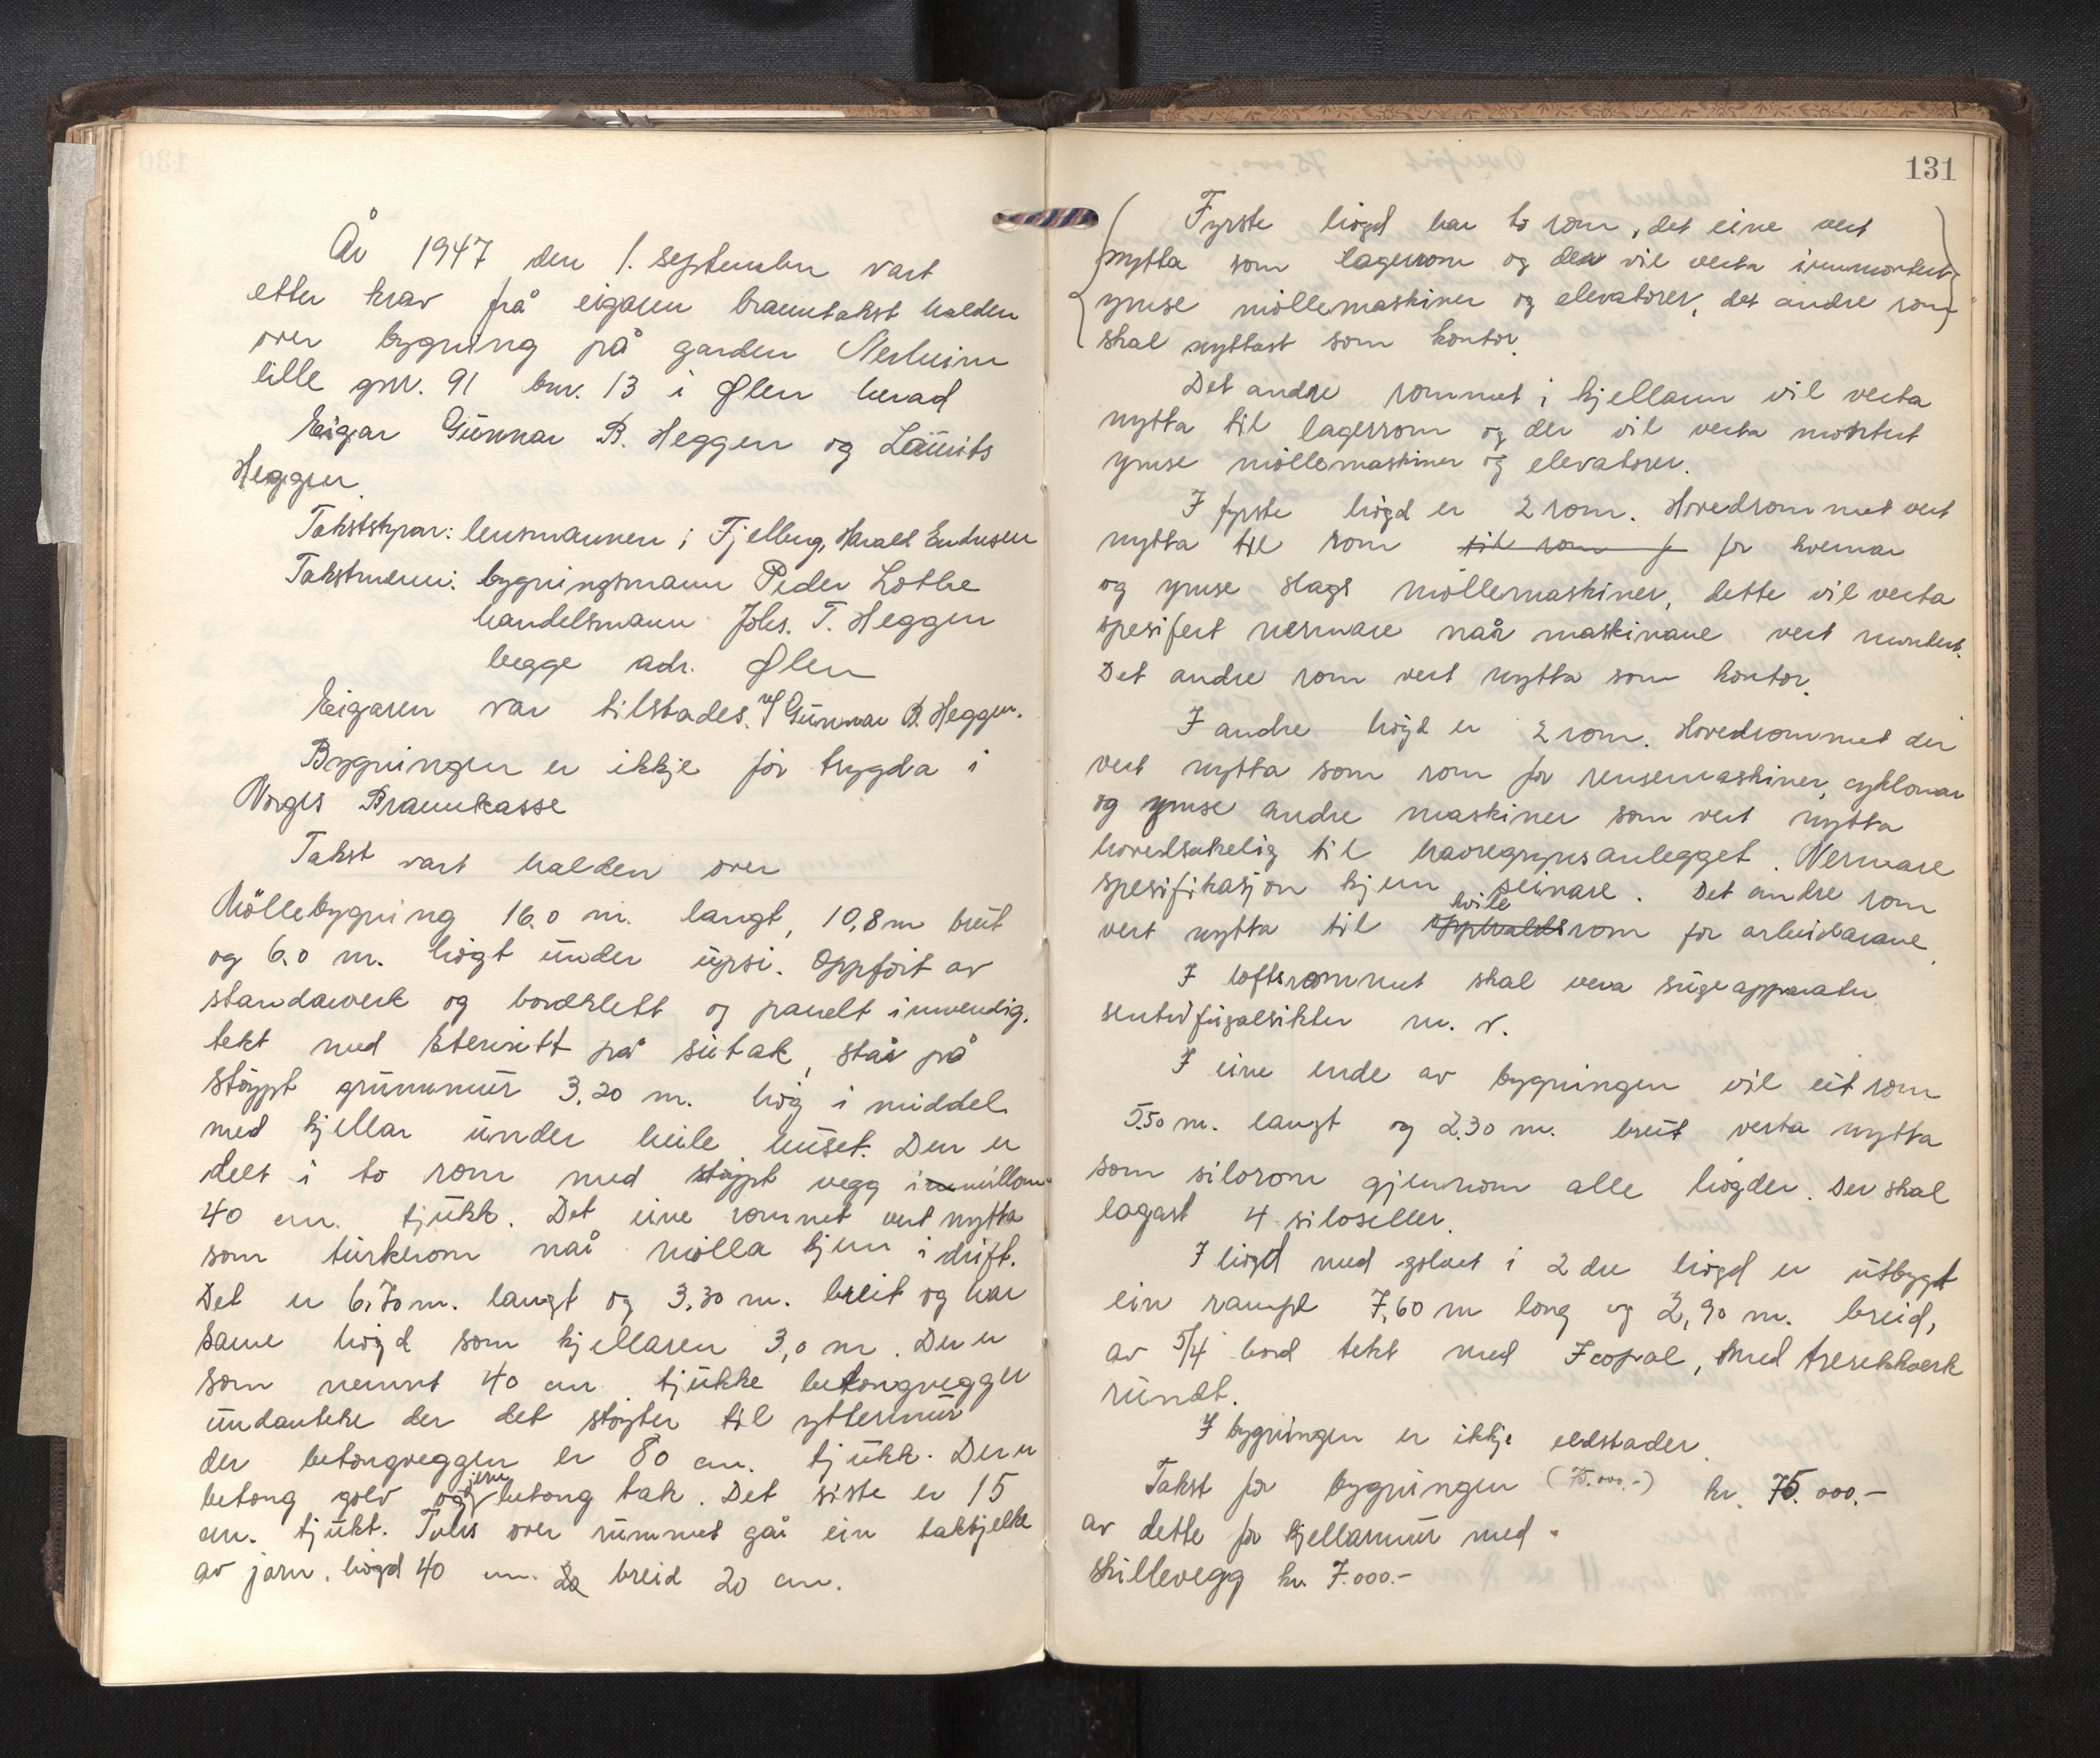 År 1947 den 1. september vart
etter krav frå eigaren branntakst halden
over bygning på garden Nerheim
lille gnr. 91 bnr. 13 i Ølen herad
Eigar Gunnar B. Heggen og Laurits
Heggen.
Takststyrar: lensmannen i Fjelberg, Harald Endresen
Takstmenn: bygningsmann Peder Lothe
handelsmann Johs. T. Heggen
begge adr. Ølen
Eigaren var tilstades. v/ Gunnar B. Heggen.
Bygningen er ikkje før trygda i
Norges Brannkasse
Takst vart halden over
Möllebygning 16.0 m. langt, 10,8 m breit
og 6.0 m. høgt under upsi. Oppført av
standarverk og bordklett og panelt innvendig.
tekt med Eternitt på sutak, står på
støypt grunnmur 3.20 m. høg i middel.
med kjellar under heile huset. Den er
delt i to rom med støypt vegg imillom
40 cm. tjukk. Det eine rommet vert nytta
som turkerom når mölla kjem i drift.
Det er 6.70 m. langt og 3.30 m. breit og har
same høgd som kjellaren 3,0 m. Der er
som nemnt 40 cm. tjukke betongveggen
undanteke der det støyter til yttermur
der betongveggen er 80 cm. tjukk. Der er
betong golv og jern betong tak. Det siste er 15
cm. tjukt. Tvers over rummet går ein takbjelke
av jarn, høgd 40 cm. breid 20 cm.
131
Fyrste høgd har to rom, det eine vert
nytta som lagerrom og der vil verta innmontert
ymse möllemaskiner og elevatorer, det andre rom
skal nyttast som kontor.
Det andre rommet i kjellaren vil verta
nytta til lagerrom og der vil verta montert
ymse möllemaskiner og elevatorer.
I fyrste høgd er 2 rom. Hovedrommet vert
nytta til rom til rom f for kvernar
og ymse slags möllemaskiner, dette vil verta
spesifert nermare når maskinane vert montert.
Det andre rom vert nytta som kontor.
I andre høgd er 2 rom. Hovedrommet der
vert nytta som rom for rensemaskiner, cyklonar
og ymse andre maskiner som vert nytta
hovedsakelig til havregrynsanlegget. Nermare
spesifikasjon kjem seinare. Det andre rom
vert nytta til oppholds hvile rom for arbeidarane.
I loftsrommet skal vera sugeapparater
sentrifugalsikter m. v.
I eine ende av bygningen vil eit rom
5.50 m. langt og 2.30 m. breit verta nytta
som silorom gjennom alle høgder. Der skal
lagast 4 siloseller.
I høgd med golvet i 2 dre høgd er utbygt
ein rampe 7,60 m long og 2,90 m. breid,
av 5/4 bord tekt med Icopal, med trerekkverk
rundt.
I bygningen er ikkje eldstader.
Takst for bygningen (75.000.-) kr. 75.000.-
av dette for kjellarmur med
skillevegg kr. 7.000.-